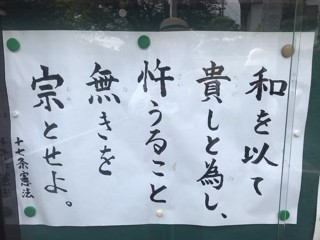 和を以て
貴しと為し、
忤うること
無きを
宗とせよ。
十七条憲法